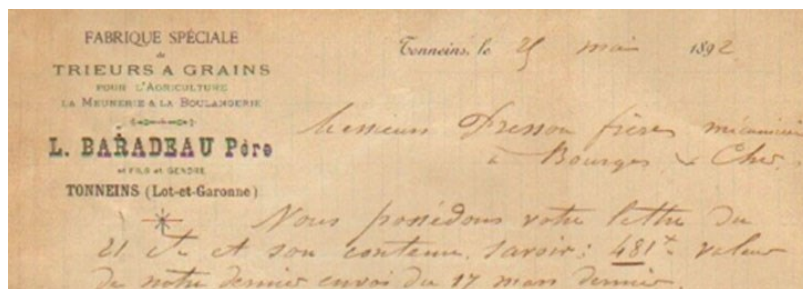 FABRIQUE SPÉCIALE
de
TRIEURS A GRAINS
POUR L'AGRICULTURE
LA MEUNERIE & LA BOULANGERIE
L. BARADEAU Père
et FILS et GENDRE
TONNEINS (Lot-et-Garonne)
Tonneins, le 25 mai 1892
Messieurs Presson frères mécaniciens
à Bourges Cher
Nous possédons votre lettre du
21 ct et son contenu, savoir: 481 valeur
de notre dernier envoi du 17 mars dernier.